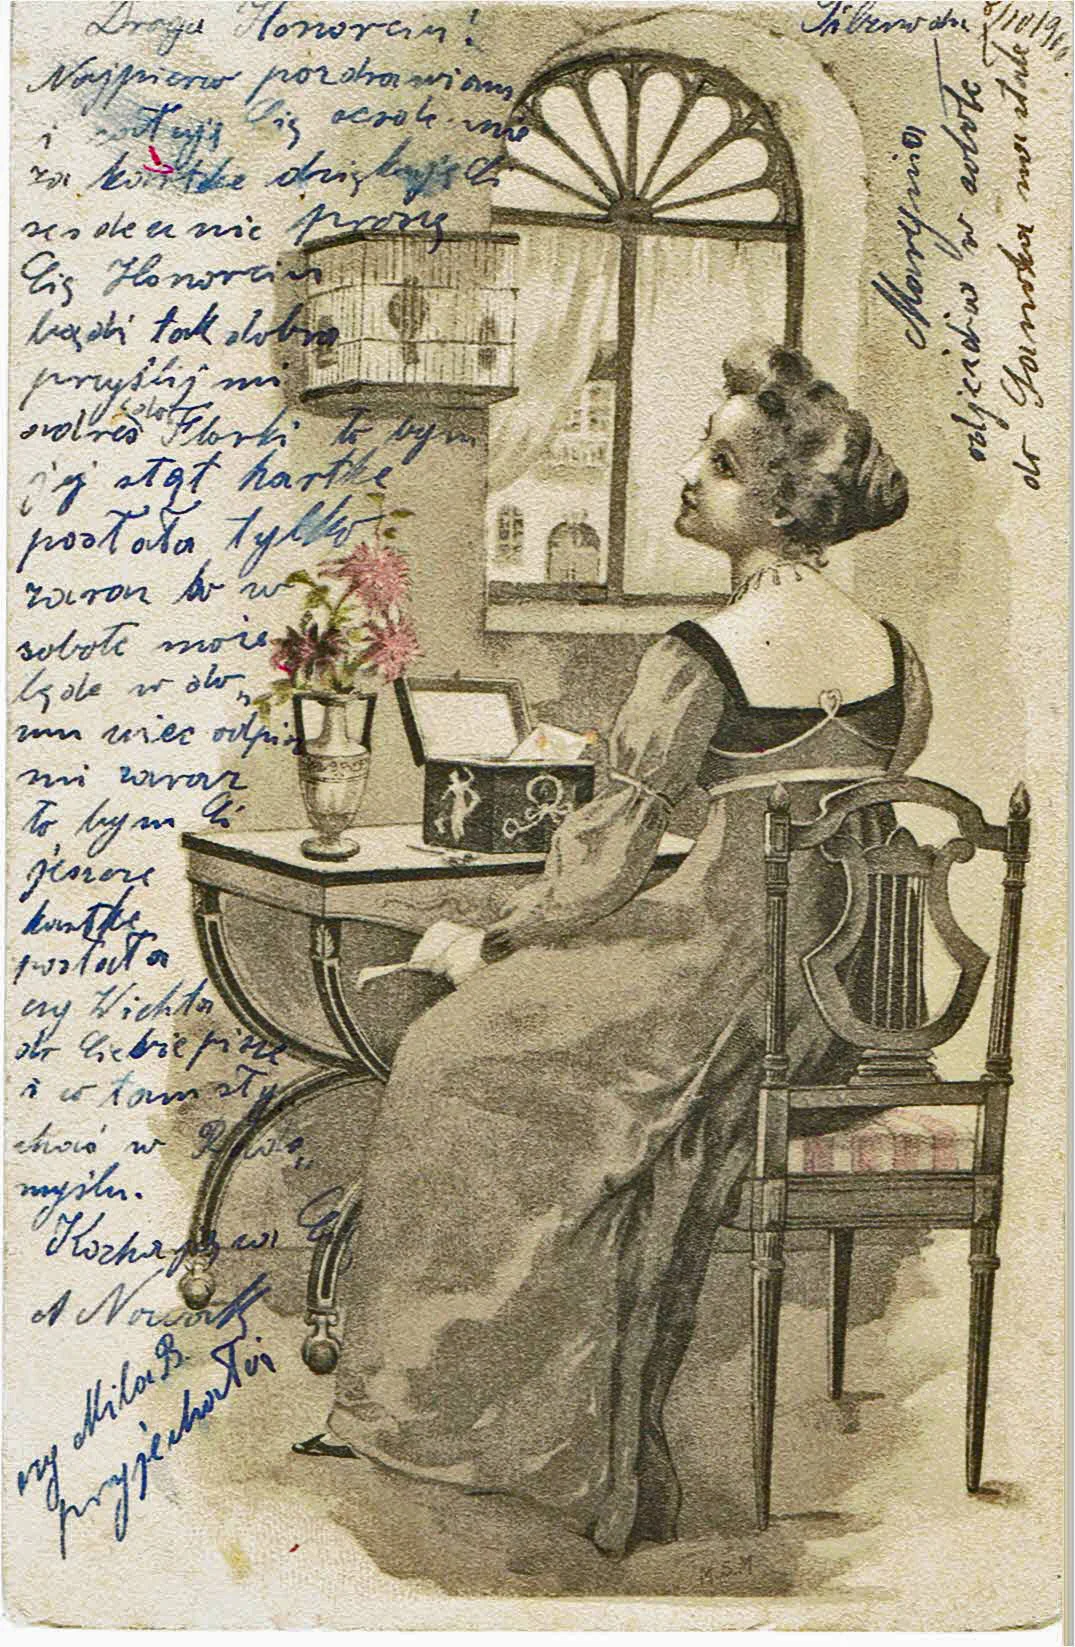 Droga Honorciu!
Najpierw pozdrawiam
i Cię
za kartke dziękuję Ci
serdecznie proszę
Cię Honorciu
bądź tak dobra
przyślij mi
adres Florki to bym
jej stąt kartke
postała tylko
zaraz bo w
sobote może
będe w do„
mu wiec odpisz
mi zaraz
to bym Ci
jeszcze
kartke
postała
czy Wichta
do Ciebie pisze
i co tam sły„
chać w
myślu.
Kochająca Cię
A Nowak
czy Mila B.
przyjechała
Marynia
odjedzie w sobote
do
M.S.M